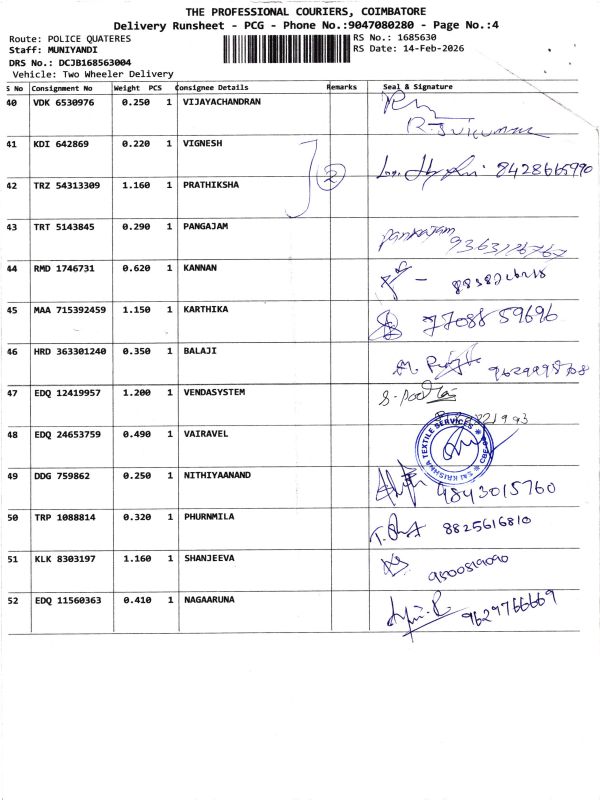 THE PROFESSIONAL COURIERS, COIMBATORE
Delivery Runsheet - PCG - Phone No.:9047080280 - Page No.:4
Route: POLICE QUATERES RS No.: 1685630
Staff: MUNIYANDI RS Date: 14-Feb-2026
DRS No.: DCJB168563004
Vehicle: Two Wheeler Delivery
S No Consignment No Weight PCS Consignee Details Remarks Seal & Signature
40 VDK 6530976 0.250 1 VIJAYACHANDRAN
41 KDI 642869 0.220 1 VIGNESH
2 8428665990
42 TRZ 54313309 1.160 1 PRATHIKSHA
43 TRT 5143845 0.290 1 PANGAJAM Pankajam
9363126767
44 RMD 1746731 0.620 1 KANNAN
45 MAA 715392459 1.150 1 KARTHIKA 77088 59696
46 HRD 363301240 0.350 1 BALAJI
47 EDQ 12419957 1.200 1 VENDASYSTEM
48 EDQ 24653759 0.490 1 VAIRAVEL SAI KRISHNA TEXTILE SERVICES
49 DDG 759862 0.250 1 NITHIYAANAND 4843015760
50 TRP 1088814 0.320 1 PHURNMILA 8825616810
51 KLK 8303197 1.160 1 SHANJEEVA 9500519090
52 EDQ 11560363 0.410 1 NAGAARUNA 9629766669